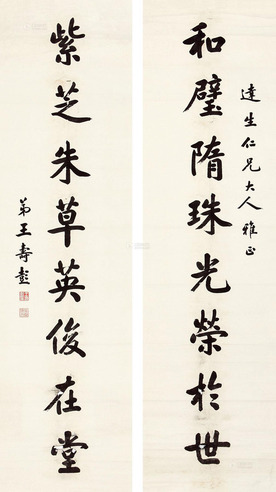 達生仁兄大人雅正
和璧隋珠光榮於世
紫芝朱草英俊在堂
弟王壽彭